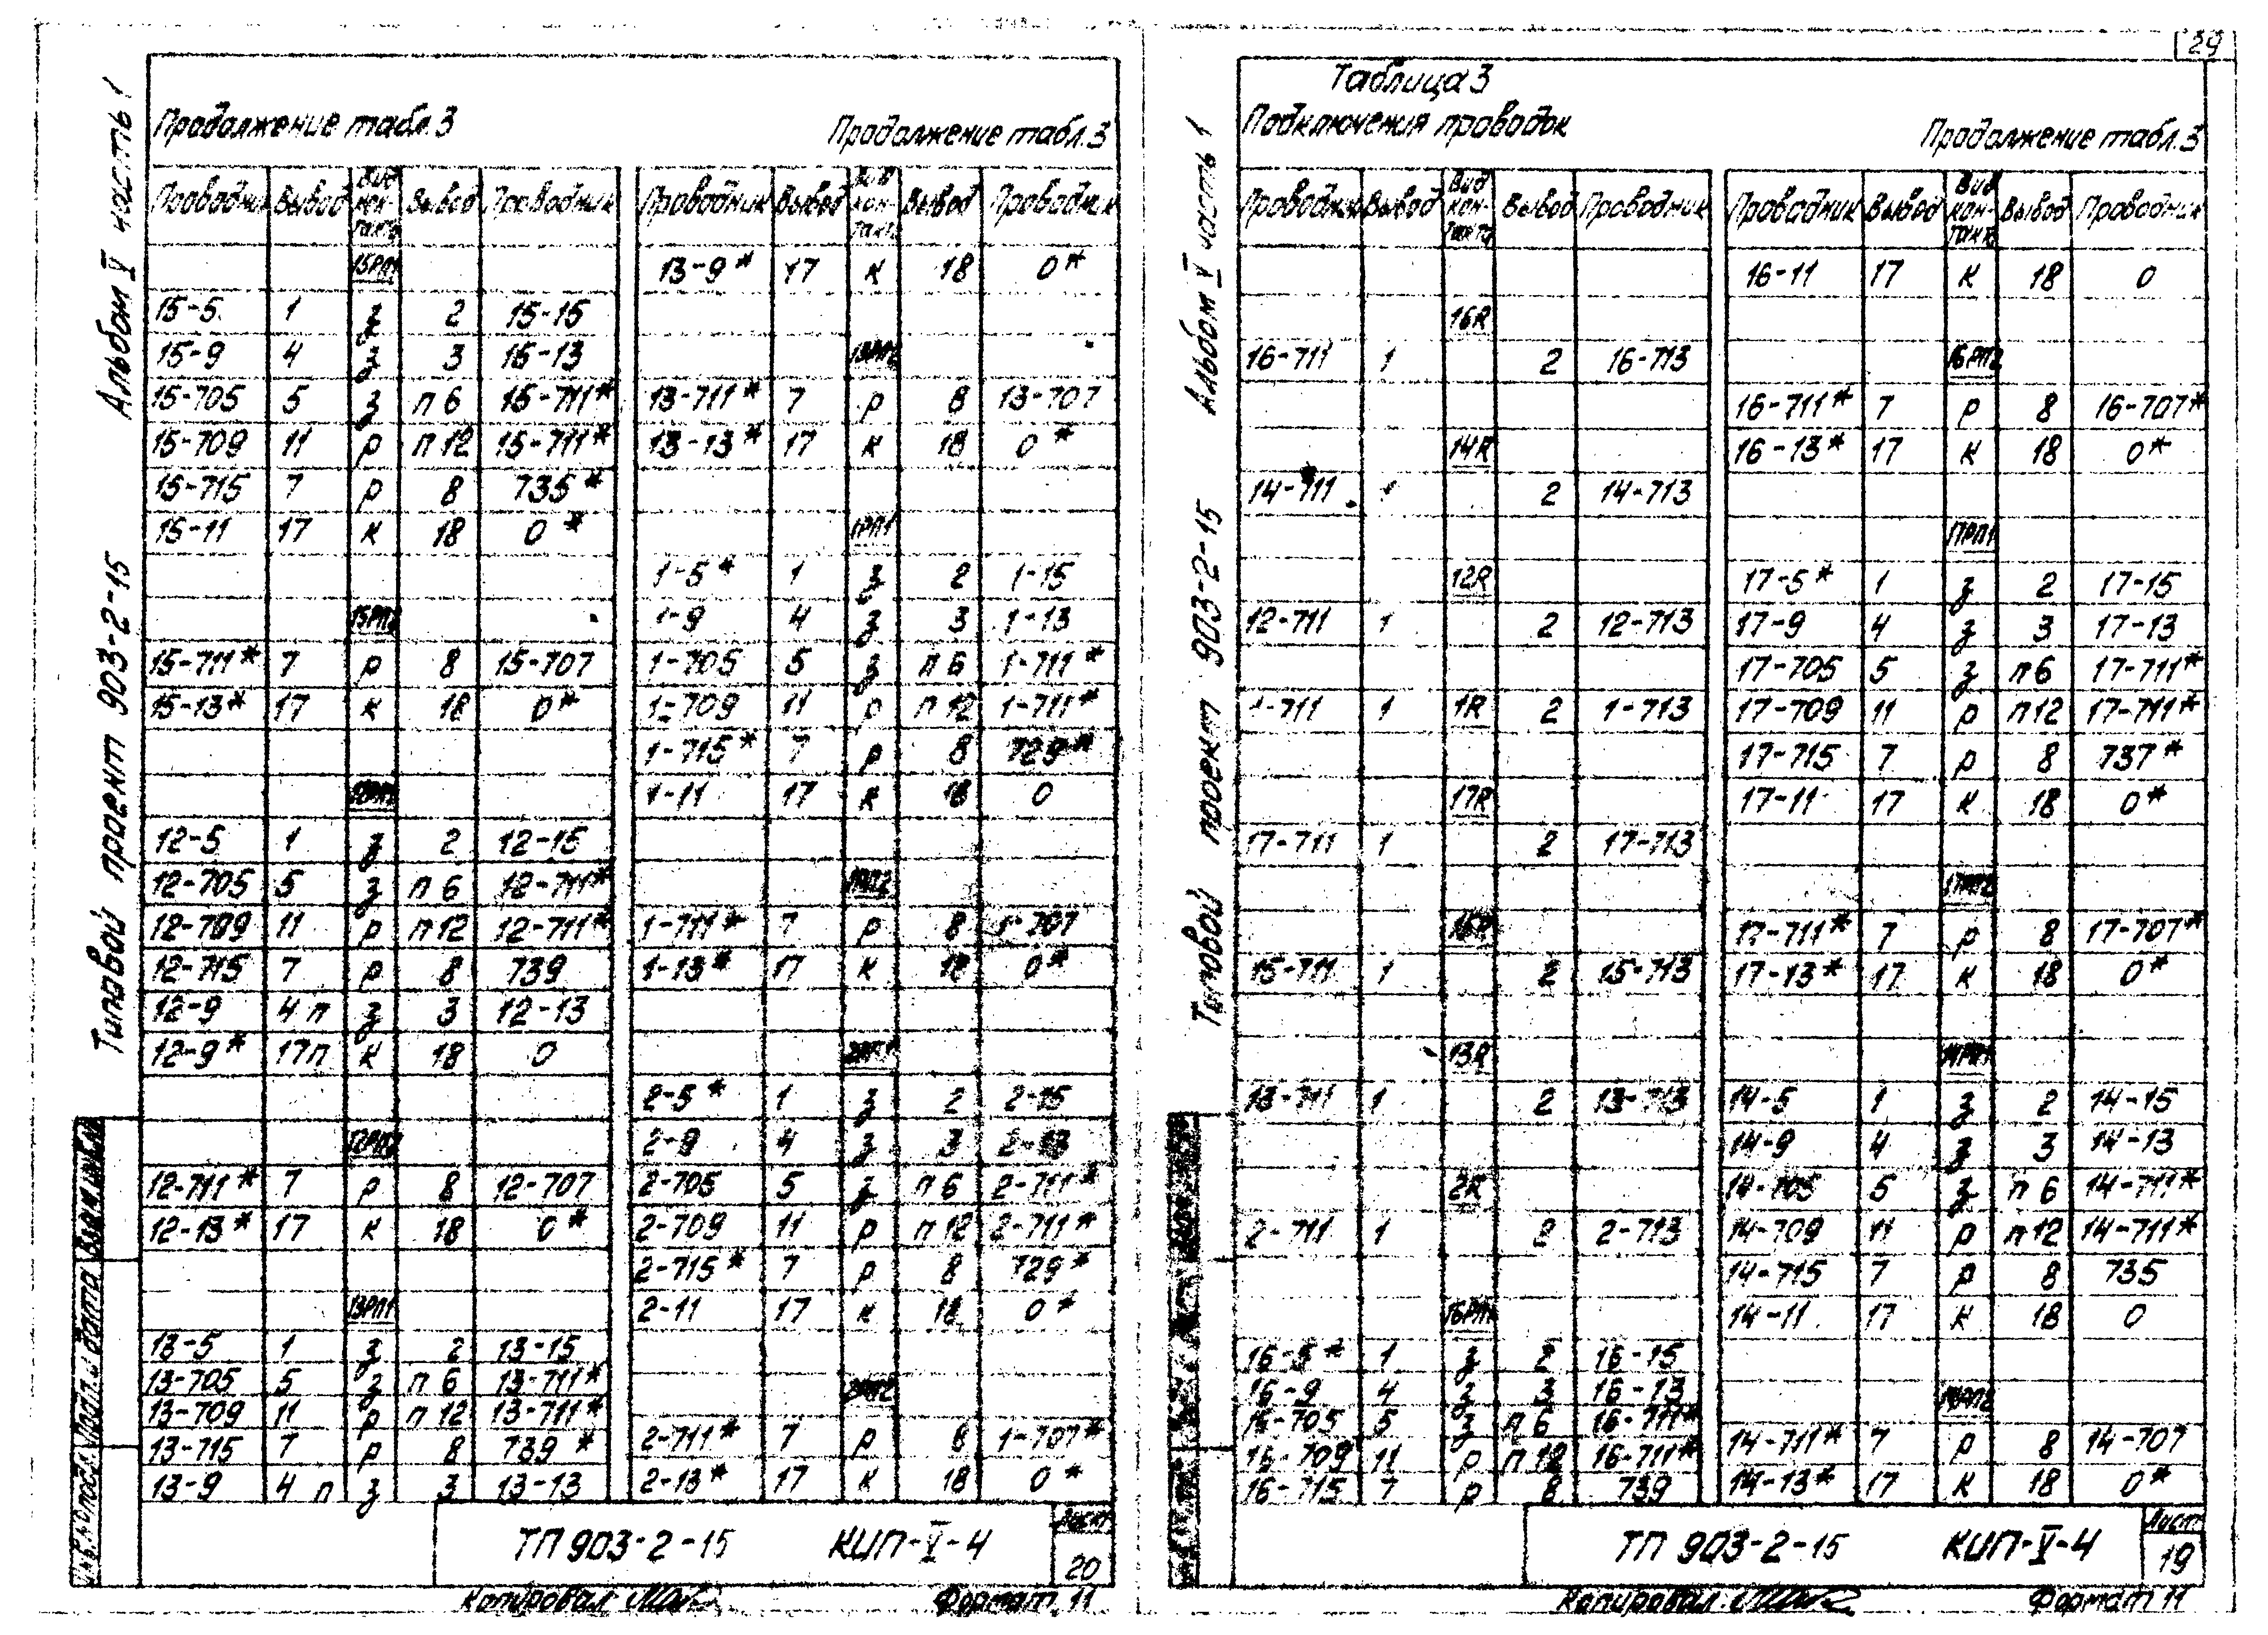 Альбом V часть 1
Типовой проект 903-2-15
Продолжение табл.3
Проводник Вывод Вид кон-такта Вывод Проводник
15РП1
15-5 1 з 2 15-15
15-9 4 з 3 15-13
15-705 5 з п 6 15-711*
15-709 11 р п 12 15-711*
15-715 7 р 8 735*
15-11 17 к 18 0*
15РП2
15-711* 7 р 8 15-707
15-13* 17 к 18 0*
12-5 1 з 2 12-15
12-705 5 з п 6 12-711*
12-709 11 р п 12 12-711*
12-715 7 р 8 739
12-9 4 п з 3 12-13
12-9* 17п к 18 0
12РП2
12-711* 7 р 8 12-707
12-13* 17 к 18 0*
13РП1
13-5 1 з 2 13-15
13-705 5 з п 6 13-711*
13-709 11 р п 12 13-711*
13-715 7 р 8 739*
13-9 4 п з 3 13-13
Продолжение табл.3
Проводник Вывод Вид кон-такта Вывод Проводник
13-9* 17 к 18 0*
13РП2
13-711* 7 р 8 13-707
13-13* 17 к 18 0*
1РП1
1-5* 1 з 2 1-15
1-9 4 з 3 1-13
1-705 5 з п 6 1-711*
1-709 11 р п 12 1-711*
1-715* 7 р 8 729*
1-11 17 к 18 0
1РП2
1-711* 7 р 8 1-707
1-13* 17 к 18 0*
2РП1
2-5* 1 з 2 2-15
2-9 4 з 3 2-13
2-705 5 з п 6 2-711*
2-709 11 р п 12 2-711*
2-715* 7 р 8 729*
2-11 17 к 18 0*
2РП2
2-711* 7 р 8 1-707*
2-13* 17 к 18 0*
Инв.№ подл. Подп. и дата Взам.инв.№
ТП 903-2-15 КИП-V-4
Лист
20
Копировал
Формат 11
29
Альбом V часть 1
Типовой проект 903-2-15
Таблица 3
Подключения проводок
Проводник Вывод Вид кон-такта Вывод Проводник
16R
16-711 1 2 16-713
14R
14-711 1 2 14-713
12R
12-711 1 2 12-713
1-711 1 1R 2 1-713
17R
17-711 1 2 17-713
15-711 1 2 15-713
13R
13-711 1 2 13-713
2R
2-711 1 2 2-713
16РП1
16-5* 1 з 2 16-15
16-9 4 з 3 16-13
16-705 5 з п 6 16-711*
16-709 11 р п 12 16-711*
16-715 7 р 8 739
Продолжение табл.3
Проводник Вывод Вид кон-такта Вывод Проводник
16-11 17 к 18 0
16РП2
16-711* 7 р 8 16-707*
16-13* 17 к 18 0*
17РП1
17-5* 1 з 2 17-15
17-9 4 з 3 17-13
17-705 5 з п6 17-711*
17-709 11 р п12 17-711*
17-715 7 р 8 737*
17-11 17 к 18 0*
17РП2
17-711* 7 р 8 17-707*
17-13* 17 к 18 0*
14РП1
14-5 1 з 2 14-15
14-9 4 з 3 14-13
14-705 5 з п 6 14-711*
14-709 11 р п12 14-711*
14-715 7 р 8 735
14-11 17 к 18 0
14РП2
14-711* 7 р 8 14-707
14-13* 17 к 18 0*
ТП 903-2-15 КИП-V-4
Лист
19
Копировал
Формат 11